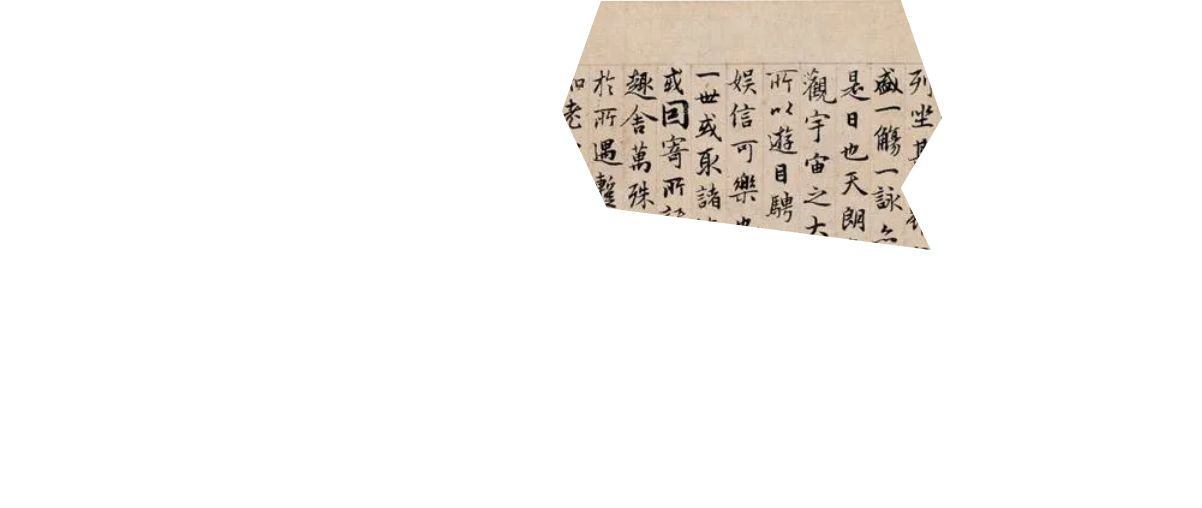 列坐其
盛一觴一詠亦
是日也天朗
觀宇宙之大
所以遊目騁
娛信可樂也
一世或取諸
或因寄所
趣舍萬殊
於所遇暫
知老